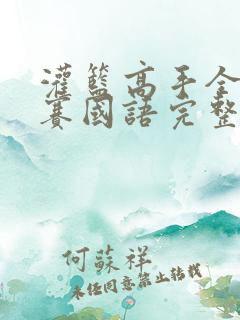 灌籃高手全
賽國語完整
何蘇祥
未經同意禁止轉載